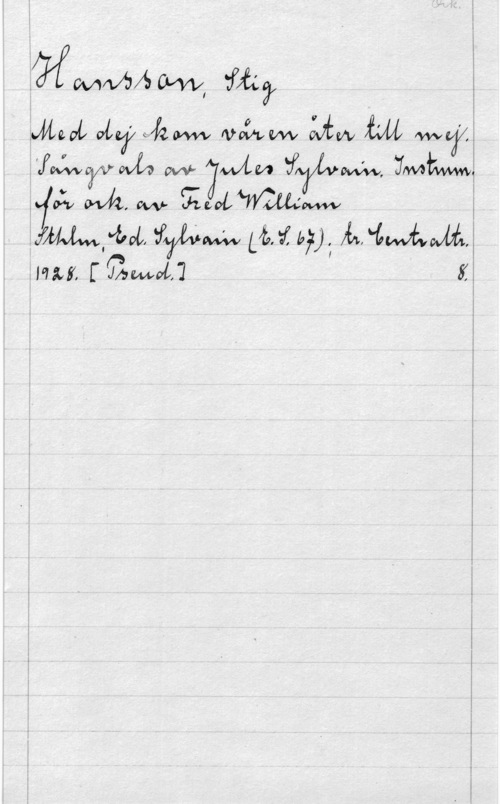 Ork.
Hansson, Stig
Med dej kom våren åter till mej.
Sångvals av Jules Sylvain. Instrum.
för ork. av Fred William
Sthlm, Ed. Sylvain (E.S. 67); tr. Centraltr.
1928. [Pseud.] 8.